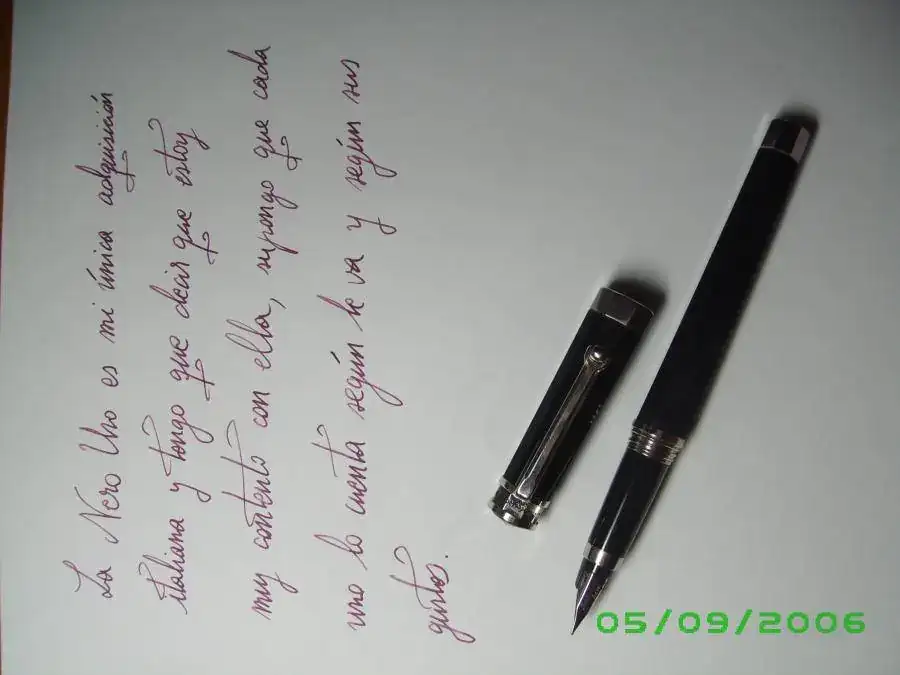 La Nero Uno es mi única adquisición
italiana y tengo que decir que estoy
muy contento con ella, supongo que cada
uno lo cuenta según le va y según sus
gustos.
05/09/2006